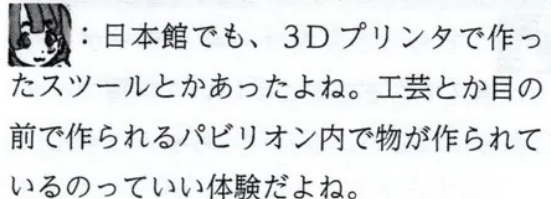 ：日本館でも、3Dプリンタで作っ
たスツールとかあったよね。工芸とか目の
前で作られるパビリオン内で物が作られて
いるのっていい体験だよね。